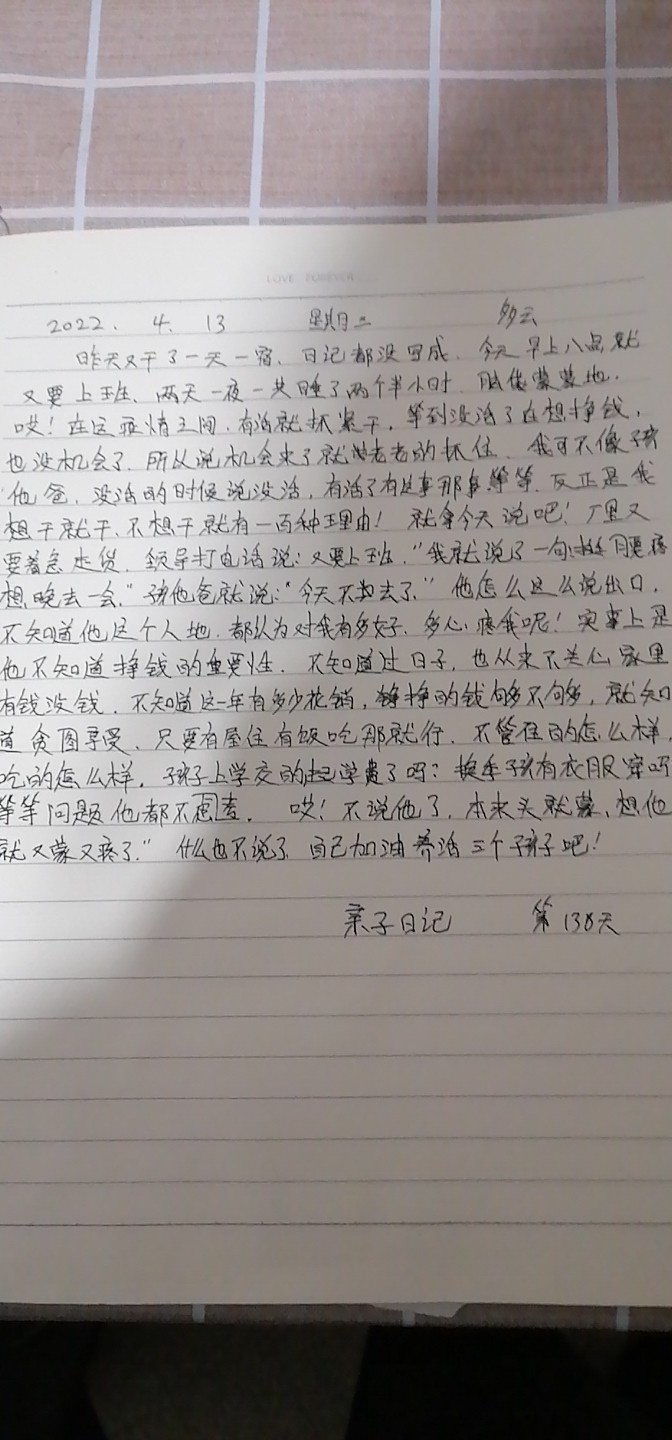 LOVE FOREVER
2022. 4. 13 星期三 多云
昨天又干了一天一宿、日记都没写成. 今天早上八点就
又要上班、两天一夜一共睡了两个半小时. 脑袋蒙蒙地.
哎! 在这疫情之间, 有活就抓紧干, 等到没活了在想挣钱,
也没机会了. 所以说机会来了就老老的抓住. 我可不像孩
他爸, 没活的时候说没活, 有活了有这事那事等等. 反正是我
想干就干、不想干就有一百种理由! 就拿今天说吧! 厂里又
要着急出货. 领导打电话说: 又要上班. "我就说了一句: 腰疼
想晚去一会." 孩他爸就说: "今天不去了." 他怎么这么说出口.
不知道他这个人地. 都认为对我有多好. 多心疼我呢! 实事上是
他不知道挣钱的重要性. 不知道过日子, 也从来不关心家里
有钱没钱. 不知道这一年有多少花销, 挣的钱够不够, 就知
道贪图享受. 只要有屋住有饭吃那就行. 不管住的怎么样,
吃的怎么样, 孩子上学交的学费了吗? 换季孩有衣服穿吗
等等问题他都不. 哎! 不说他了, 本来头就蒙、想他
就又蒙又疼了." 什么也不说了 自己加油养活三个孩子吧!
子日记 第138天